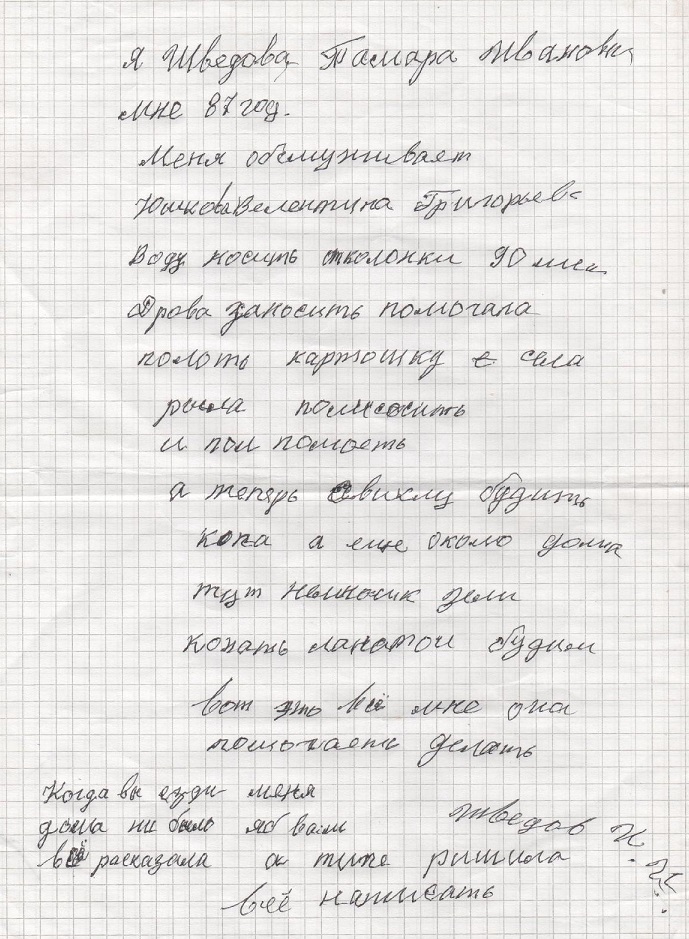 Я Шведова, Тамара Ивановн
мне 87 год.
Меня обслуживает
Юшкова Велентина Григорьев
Воду носить сколонки 90
Дрова заносить помогала
полоть картошку с сала
рыла
и пол помоеть
а теперь свихлу будить
копа а еще около дома
тут немносик земи
копать лапатой будим
вот это всё мне она
помогаеть делать
Когда вы езди меня
дома ни было яб вам
всё расказала а типе ришила
всё написать
Шведов